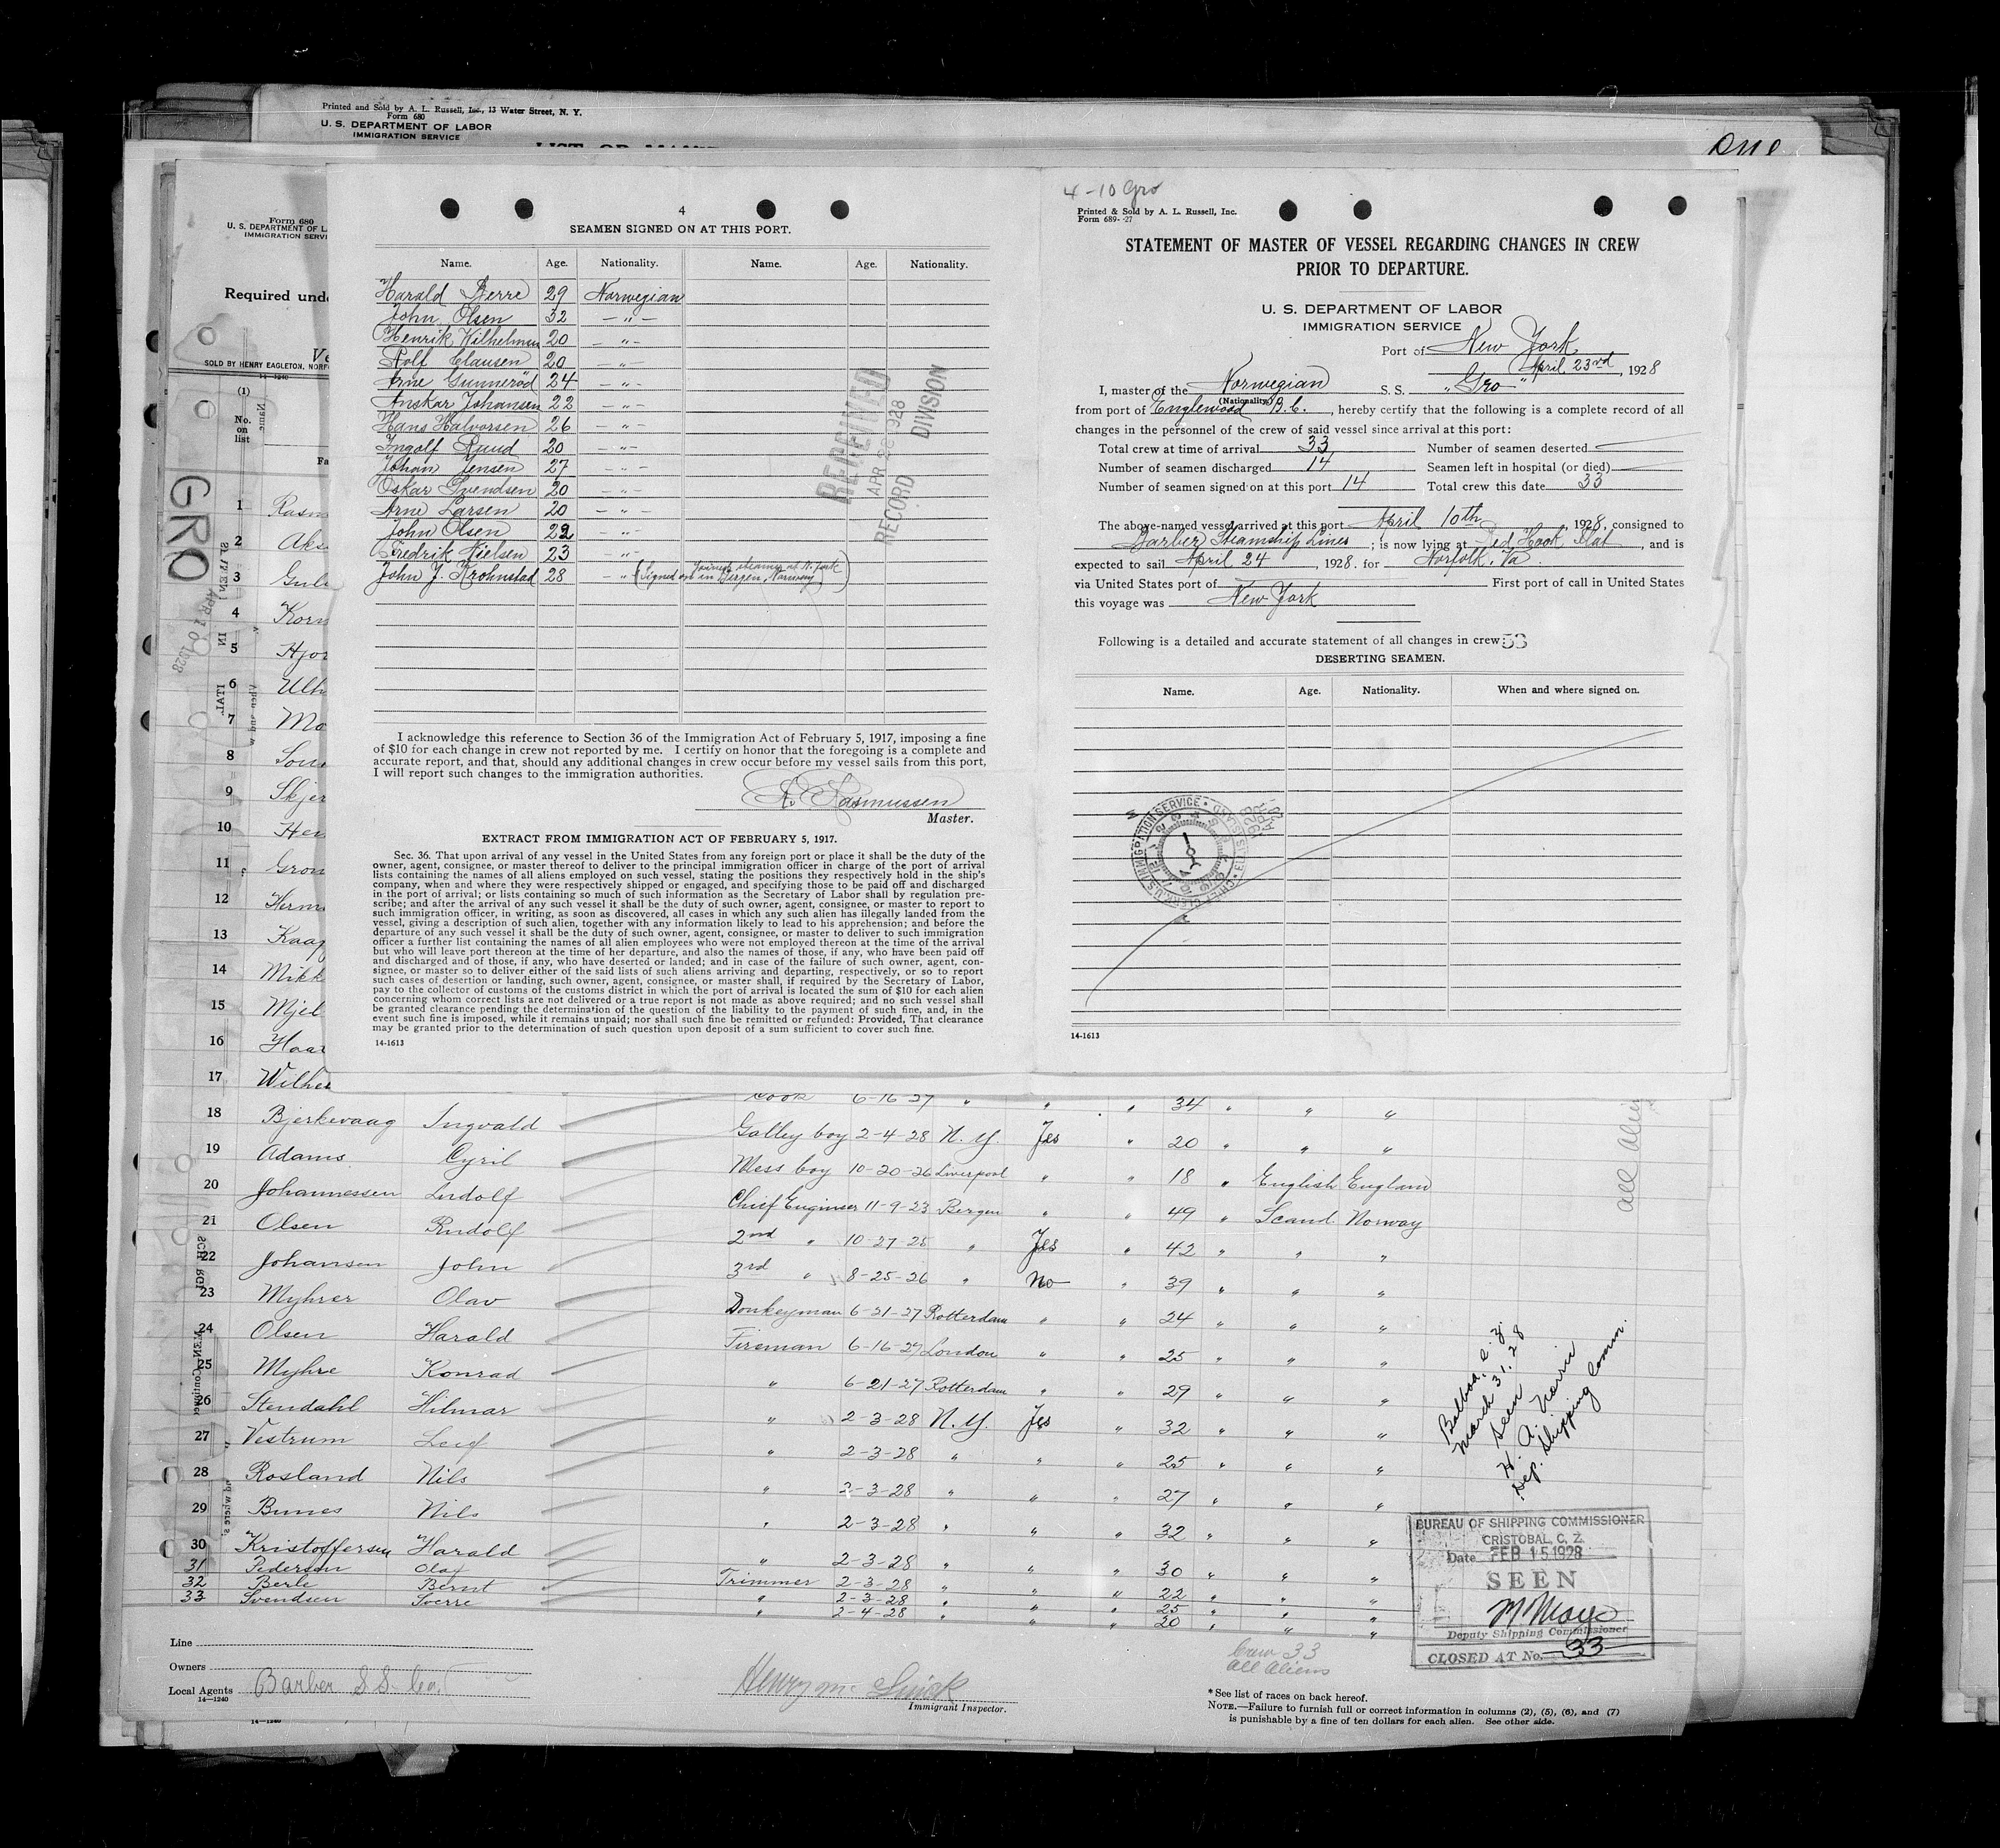 Printed and Sold by A. L. Russell, Inc., 13 Water Street, N. Y.
Form 680
U. S. DEPARTMENT OF LABOR
IMMIGRATION SERVICE
one
Form 680
U. S. DEPARTMENT OF L
IMMIGRATION SERVI
Required und
Ve
SOLD BY HENRY EAGLETON, NORF
14-1240
(1)
No.
on
list
Name
Fa
GRO
APR 10 1928
1 Rasm
2 Aks
3 Gul
4 Korn
5 Hjor
6 Ulh
7 Mo
8 Son
9 Skjer
10 Hen
11 Gron
12 Herm
13 Kaag
14 Mikk
15 Mjel
16 Haar
17 Wilhe
4
SEAMEN SIGNED ON AT THIS PORT.
Name. Age. Nationality. Name. Age. Nationality.
Harald Bjerre 29 Norwegian
John Olsen 32 - " -
Henrik Wilhelmsen 20 - " -
Rolf Clausen 20 - " -
Arne Gunnerød 24 - " -
Anskar Johansen 22 - " -
Hans Halvorsen 26 - " -
Ingolf Ruud 20 - " -
Johan Jensen 27 - " -
Oskar Svendsen 20 - " -
Arne Larsen 20 - " -
John Olsen 22 - " -
Fredrik Nielsen 23 - " -
John J. Krohnstad 28 - " (Signed on in Bergen, Norway
Joined steamer at N. York)
RECEIVED
APR 28 1928
RECORD DIVISION
I acknowledge this reference to Section 36 of the Immigration Act of February 5, 1917, imposing a fine
of $10 for each change in crew not reported by me. I certify on honor that the foregoing is a complete and
accurate report, and that, should any additional changes in crew occur before my vessel sails from this port,
I will report such changes to the immigration authorities.
R. Rasmussen
Master.
EXTRACT FROM IMMIGRATION ACT OF FEBRUARY 5, 1917.
Sec. 36. That upon arrival of any vessel in the United States from any foreign port or place it shall be the duty of the
owner, agent, consignee, or master thereof to deliver to the principal immigration officer in charge of the port of arrival
lists containing the names of all aliens employed on such vessel, stating the positions they respectively hold in the ship's
company, when and where they were respectively shipped or engaged, and specifying those to be paid off and discharged
in the port of arrival; or lists containing so much of such information as the Secretary of Labor shall by regulation pre-
scribe; and after the arrival of any such vessel it shall be the duty of such owner, agent, consignee, or master to report to
such immigration officer, in writing, as soon as discovered, all cases in which any such alien has illegally landed from the
vessel, giving a description of such alien, together with any information likely to lead to his apprehension; and before the
departure of any such vessel it shall be the duty of such owner, agent, consignee, or master to deliver to such immigration
officer a further list containing the names of all alien employees who were not employed thereon at the time of the arrival
but who will leave port thereon at the time of her departure, and also the names of those, if any, who have been paid off
and discharged and of those, if any, who have deserted or landed; and in case of the failure of such owner, agent, con-
signee, or master so to deliver either of the said lists of such aliens arriving and departing, respectively, or so to report
such cases of desertion or landing, such owner, agent, consignee, or master shall, if required by the Secretary of Labor,
pay to the collector of customs of the customs district in which the port of arrival is located the sum of $10 for each alien
concerning whom correct lists are not delivered or a true report is not made as above required; and no such vessel shall
be granted clearance pending the determination of the question of the liability to the payment of such fine, and, in the
event such fine is imposed, while it remains unpaid; nor shall such fine be remitted or refunded: Provided, That clearance
may be granted prior to the determination of such question upon deposit of a sum sufficient to cover such fine.
14-1613
4-10 Gro
Printed & Sold by A. L. Russell, Inc.
Form 689-'27
STATEMENT OF MASTER OF VESSEL REGARDING CHANGES IN CREW
PRIOR TO DEPARTURE.
U. S. DEPARTMENT OF LABOR
IMMIGRATION SERVICE
Port of New York
April 23rd, 1928
I, master of the Norwegian S. S. "Gro"
(Nationality)
from port of Englewood B.C., hereby certify that the following is a complete record of all
changes in the personnel of the crew of said vessel since arrival at this port:
Total crew at time of arrival 33 Number of seamen deserted
Number of seamen discharged 14 Seamen left in hospital (or died)
Number of seamen signed on at this port 14 Total crew this date 33
The above-named vessel arrived at this port April 10th, 1928, consigned to
Barber Steamship Lines; is now lying at Red Hook Flat, and is
expected to sail April 24, 1928. for Norfolk, Va.
via United States port of First port of call in United States
this voyage was New York
Following is a detailed and accurate statement of all changes in crew 53
DESERTING SEAMEN.
Name. Age. Nationality. When and where signed on.
U.S. IMMIGRATION SERVICE
1928 APR
14-1613
Cook 6-16-27 " " " 34 " " "
18 Bjerkevaag Ingvald Galley boy 2-4-28 N.Y. Yes " 20 " " "
19 Adams Cyril Mess boy 10-20-26 Liverpool " " 18 " English England
20 Johannessen Ludolf Chief Engineer 11-9-23 Bergen " " 49 " Scand Norway
21 Olsen Rudolf 2nd " 10-27-25 " Yes " 42 " " "
22 Johansen John 3rd " 8-25-26 " No " 39 " " "
23 Myhrer Olav Donkeyman 6-21-27 Rotterdam " " 24 " " "
24 Olsen Harald Fireman 6-16-27 London " " 25 " " "
25 Myhre Konrad " 6-21-27 Rotterdam " " 29 " " "
26 Stendahl Hilmar " 2-3-28 N.Y. Yes " 32 " " "
27 Vestrum Leif " 2-3-28 " " " 25 " " "
28 Rosland Nils " 2-3-28 " " " 27 " " "
29 Bunes Nils " 2-3-28 " " " 32 " " "
30 Kristoffersen Harald " 2-3-28 " " " 30 " " "
31 Pedersen Olaf Trimmer 2-3-28 " " " 22 " " "
32 Berle Bernt " 2-3-28 " " " 25 " " "
33 Svendsen Sverre " 2-4-28 " " " 20 " " "
all alien
Balboa, C.Z.
March 31, 28
Seen
Dep. Shipping Comm.
BUREAU OF SHIPPING COMMISSIONER
CRISTOBAL, C. Z.
Date FEB 15 1928
SEEN
Deputy Shipping Commissioner
CLOSED AT No. 33
Line
Owners
Local Agents Barber S.S. Co.
14-1240
14-1240
Immigrant Inspector.
Crew 33
all aliens
*See list of races on back hereof.
NOTE.—Failure to furnish full or correct information in columns (2), (5), (6), and (7)
is punishable by a fine of ten dollars for each alien. See other side.